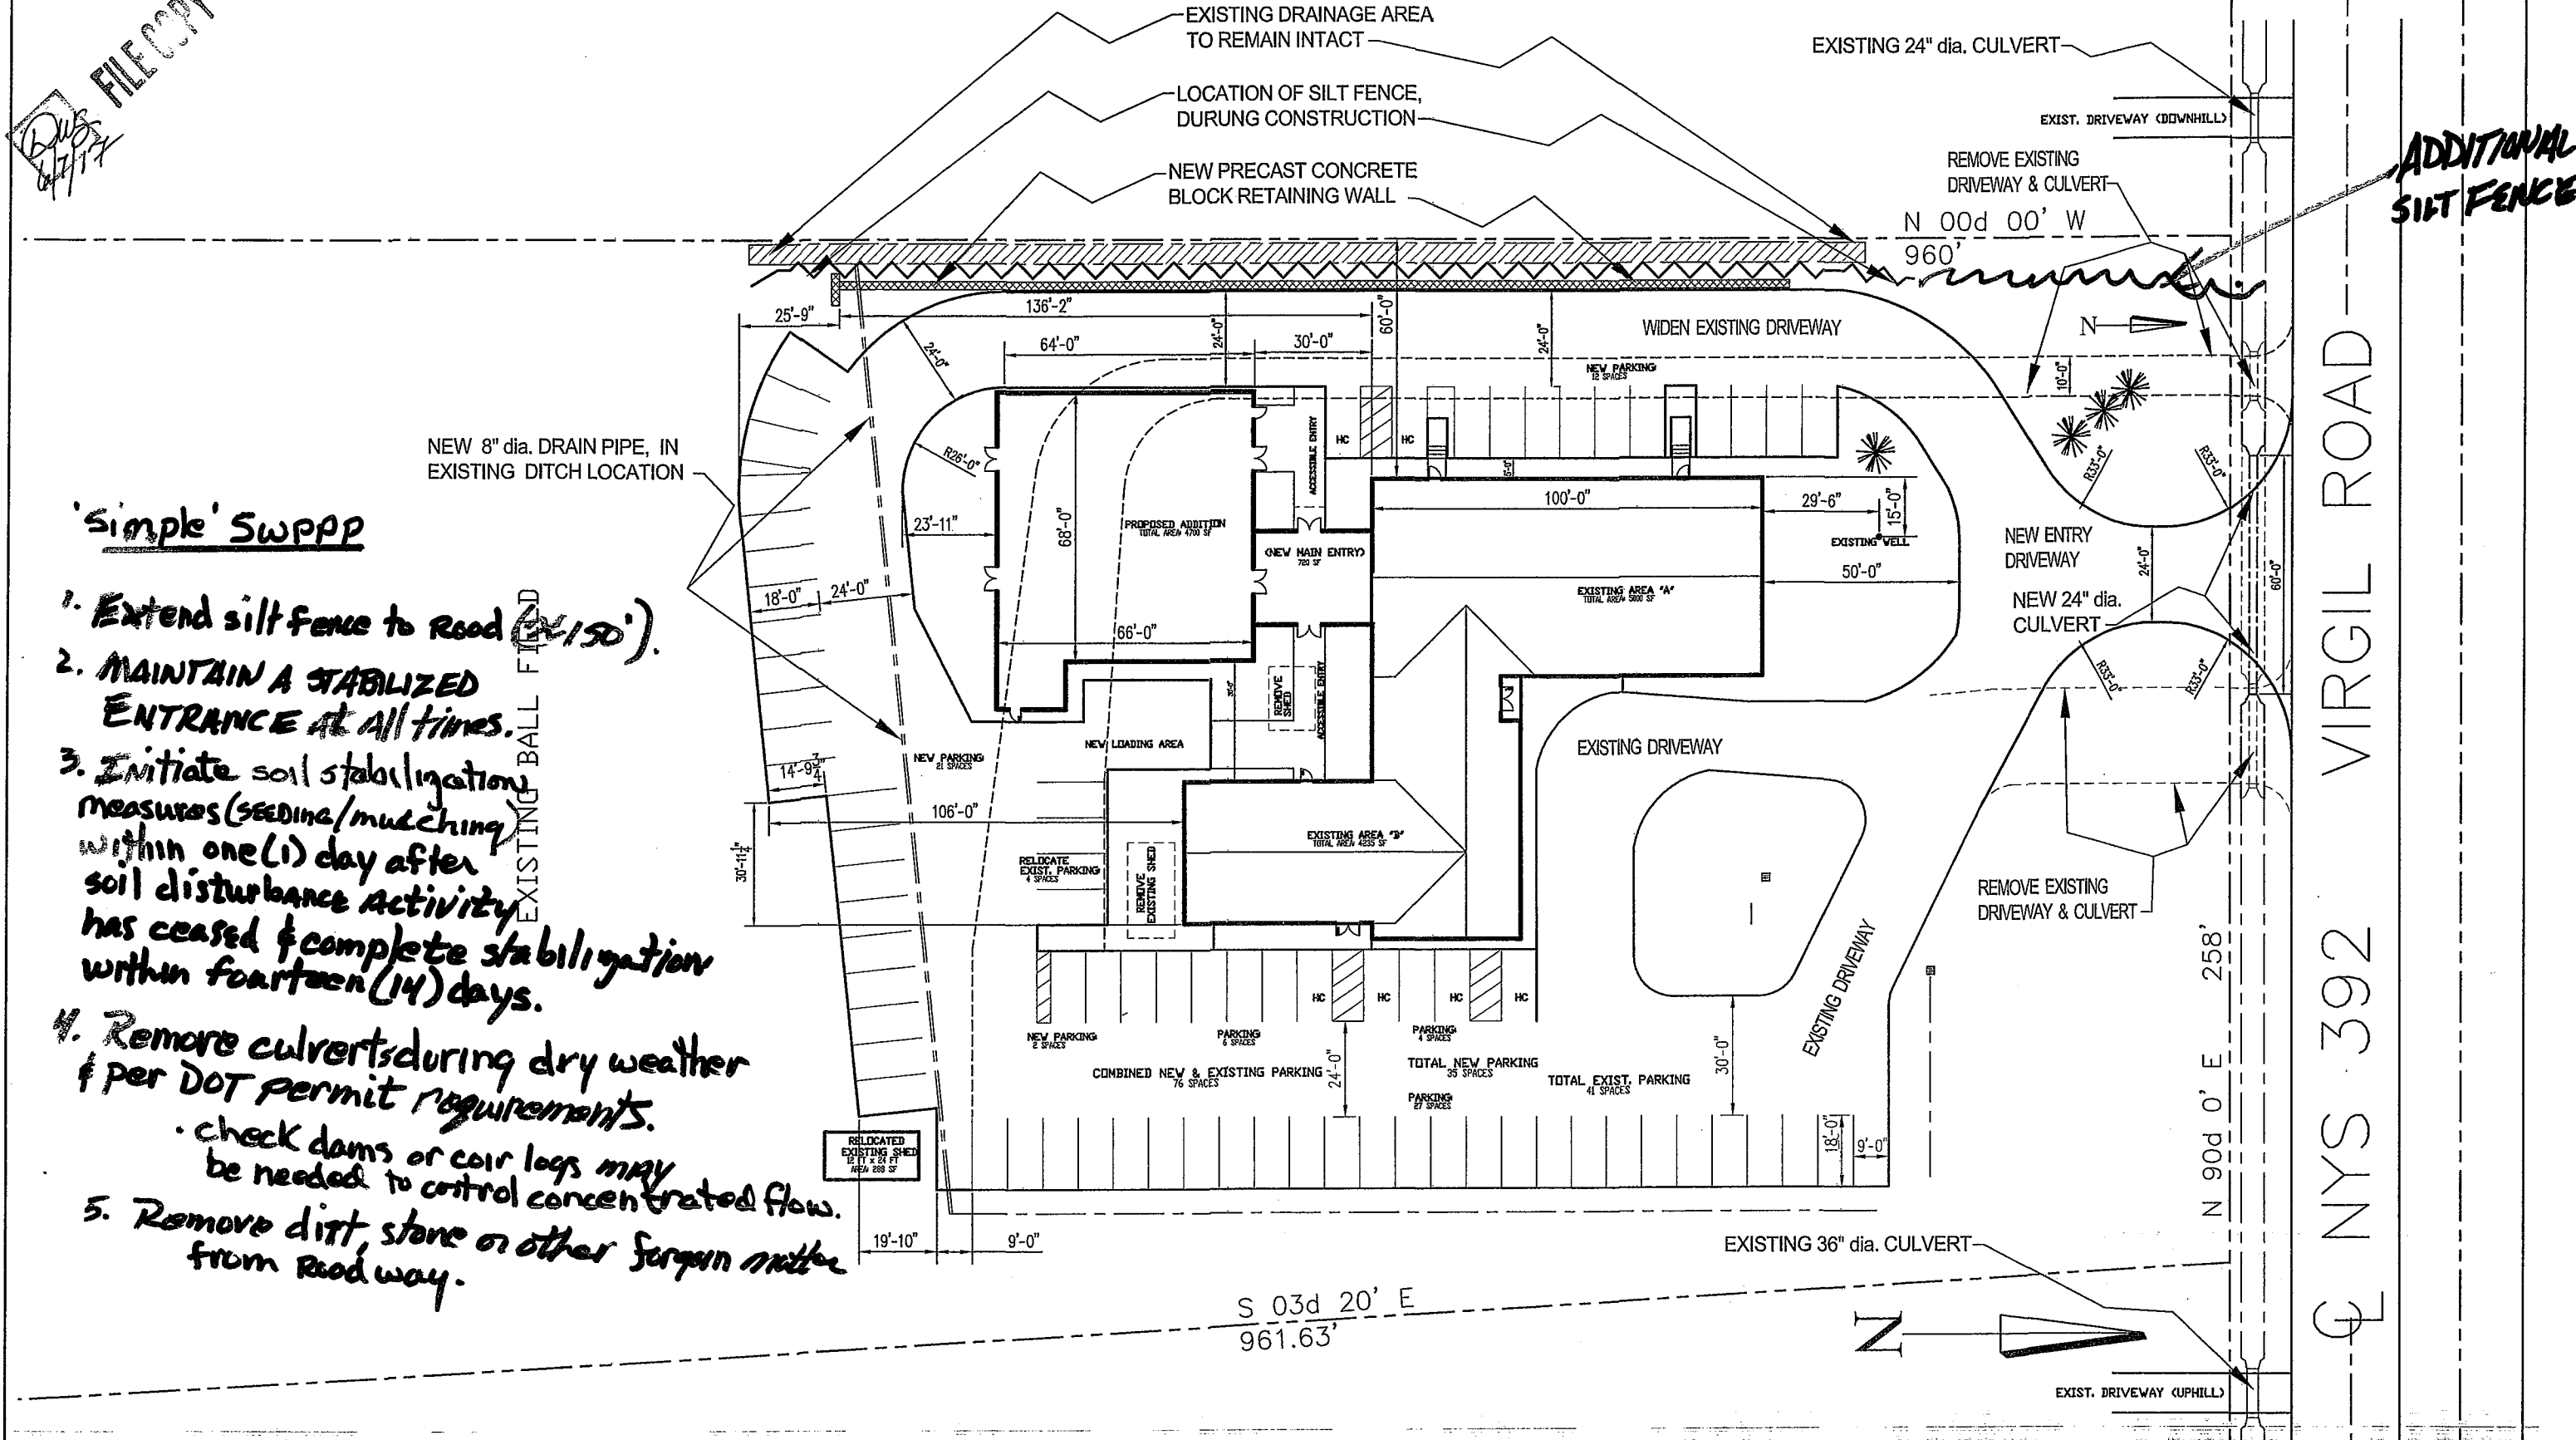 FILE COPY
DWS
6/7/17
EXISTING DRAINAGE AREA
TO REMAIN INTACT
LOCATION OF SILT FENCE,
DURUNG CONSTRUCTION
NEW PRECAST CONCRETE
BLOCK RETAINING WALL
EXISTING 24" dia. CULVERT
EXIST. DRIVEWAY (DOWNHILL)
REMOVE EXISTING
DRIVEWAY & CULVERT
ADDITIONAL
SILT FENCE
N 00d 00' W
960'
25'-9"
136'-2"
64'-0"
24'-0"
30'-0"
60'-0"
24'-0"
24'-0"
WIDEN EXISTING DRIVEWAY
N
NEW PARKING
12 SPACES
10'-0"
NEW 8" dia. DRAIN PIPE, IN
EXISTING DITCH LOCATION
R26'-0"
23'-11"
68'-0"
PROPOSED ADDITION
TOTAL AREA 4700 SF
66'-0"
ACCESSIBLE ENTRY
HC
HC
5'-0"
(NEW MAIN ENTRY)
720 SF
100'-0"
29'-6"
15'-0"
EXISTING WELL
50'-0"
EXISTING AREA "A"
TOTAL AREA 5000 SF
R33'-0"
R33'-0"
NEW ENTRY
DRIVEWAY
24'-0"
60'-0"
NEW 24" dia.
CULVERT
R33'-0"
R33'-0"
18'-0"
24'-0"
REMOVE
SHED
ACCESSIBLE ENTRY
NEW LOADING AREA
NEW PARKING
21 SPACES
14'-9 3/4"
106'-0"
30'-11 1/4"
EXISTING DRIVEWAY
EXISTING AREA "B"
TOTAL AREA 4235 SF
RELOCATE
EXIST. PARKING
4 SPACES
REMOVE
EXISTING SHED
EXISTING BALL FIELD
REMOVE EXISTING
DRIVEWAY & CULVERT
EXISTING DRIVEWAY
HC
HC
HC
HC
NEW PARKING
2 SPACES
PARKING
6 SPACES
PARKING
4 SPACES
COMBINED NEW & EXISTING PARKING
76 SPACES
24'-0"
TOTAL NEW PARKING
35 SPACES
TOTAL EXIST. PARKING
41 SPACES
PARKING
27 SPACES
30'-0"
18'-0"
9'-0"
RELOCATED
EXISTING SHED
12 FT x 24 FT
AREA 288 SF
19'-10"
9'-0"
S 03d 20' E
961.63'
EXISTING 36" dia. CULVERT
N
EXIST. DRIVEWAY (UPHILL)
N 90d 0' E 258'
CL NYS 392 VIRGIL ROAD
'Simple' SWPPP
1. Extend silt fence to Road (~150').
2. MAINTAIN A STABILIZED
ENTRANCE At All times.
3. Initiate soil stabilization
measures (SEEDING/mulching)
within one (1) day after
soil disturbance Activity
has ceased & complete stabilization
within fourteen (14) days.
4. Remove culverts during dry weather
& per DOT permit requirements.
· check dams or coir logs may
be needed to control concentrated flow.
5. Remove dirt, stone or other foreign matter
from Roadway.